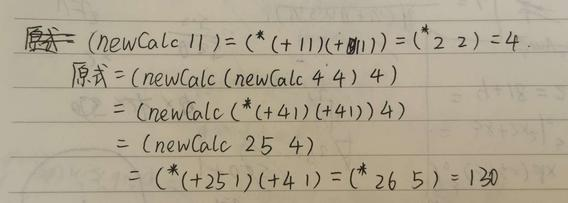 原式=(newCalc 1 1)=(*(+1 1)(+1 1))=(*2 2)=4.
原式=(newCalc (newCalc 4 4) 4)
=(newCalc (*(+4 1)(+4 1))4)
=(newCalc 25 4)
=(*(+25 1)(+4 1)=(*26 5)=130